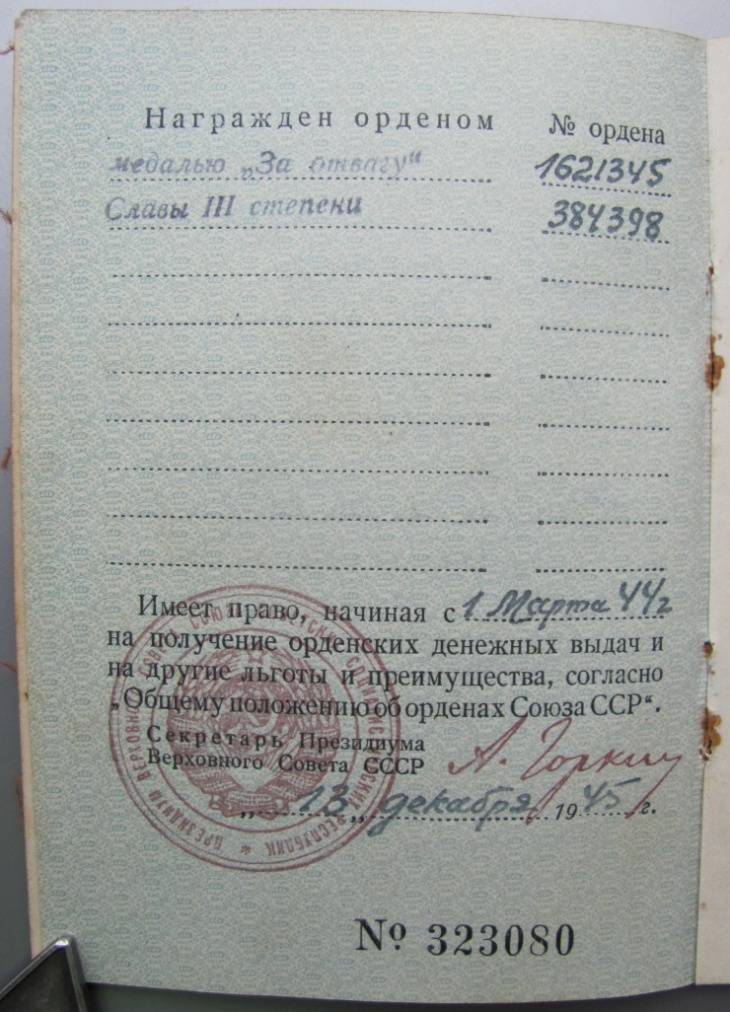 Награжден орденом № ордена
медалью „За отвагу“ 1621345
Славы III степени 384398
Имеет право, начиная с 1 Марта 44г
на получение орденских денежных выдач и
на другие льготы и преимущества, согласно
„Общему положению об орденах Союза ССР“.
Секретарь Президиума
Верховного Совета СССР А. Горкин
„ 13 „ декабря 1945 г.
№ 323080